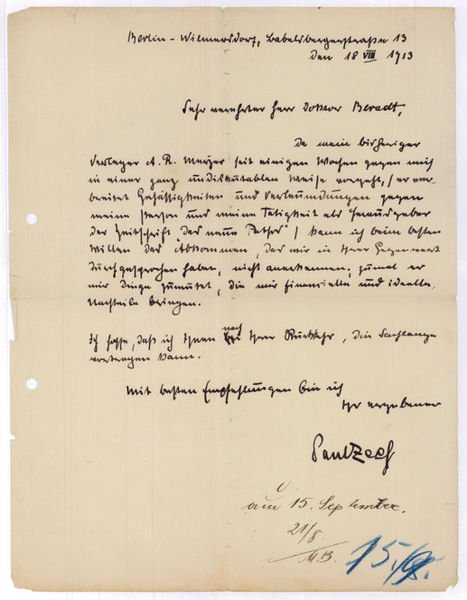 Berlin-Wilmersdorf, Babelsbergerstraße 13
den 18 VIII 1913
Sehr verehrter Herr Doktor Beradt,
Da mein bisheriger
Verleger A. R. Meyer seit einigen Wochen gegen mich
in einer ganz undiskutablen Weise vorgeht, / er ver-
breitet Gehässigkeiten und Verleumdungen gegen
meine Person und meine Tätigkeit als Herausgeber
der Zeitschrift das neue Pathos / kann ich beim besten
Willen das Abkommen, das wir in Ihrer Gegenwart
durchgesprochen haben, nicht anerkennen, zumal er
mir Dinge zumutet, die mir finanzielle und ideelle
Nachteile bringen.
Ich hoffe, daß ich Ihnen nach Ihrer Rückkehr, die Sachlage
vortragen kann.
Mit besten Empfehlungen bin ich
Ihr ergebener
Paul Zech
am 15. September.
21/8.
M.B.
15/9.